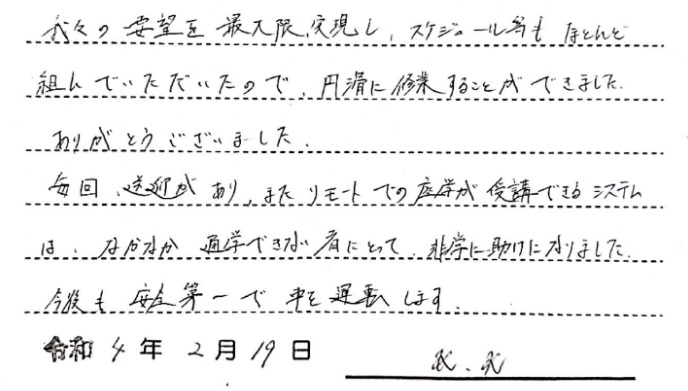 我々の要望を最大限実現し、スケジュール等もほとんど
組んでいただいたので、円滑に修業することができました。
ありがとうございました。
毎回、送迎があり、またリモートでの座学が受講できるシステム
は、なかなか通学できない者にとって、非学に助けになりました。
今後も安全第一で車を運転します。
令和4年2月19日
K.K